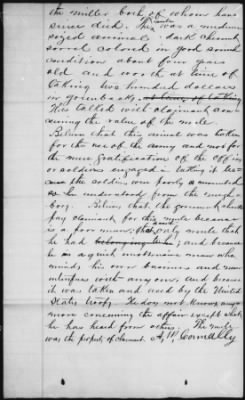 the miller both of whom have
since died. This was a medium
sized animal: dark chesnut
sorrel colored in good sound
condition about four years
old and worth at time of
taking two hundred dollars
in greenbacks
Has talked with claimant con-
cerning the value of the mule.
Believes that this animal was taken
for the use of the army and not for
the mere gratification of the officers
or soldiers engaged in taking it be-
cause the soldier was poorly mounted
as he understands from the
Believes that the government should
pay claimant for this mule because
is a poor man; that only mule that
he had belonging to him; and because
he is a quiet inoffensive man who
minds his own business and
interferes with any one. And because
it was taken and used by the United
States troops. He does not know any
more concerning the affair except what
he has heard from others. The mule
was the property of claimant. A. W. Connally